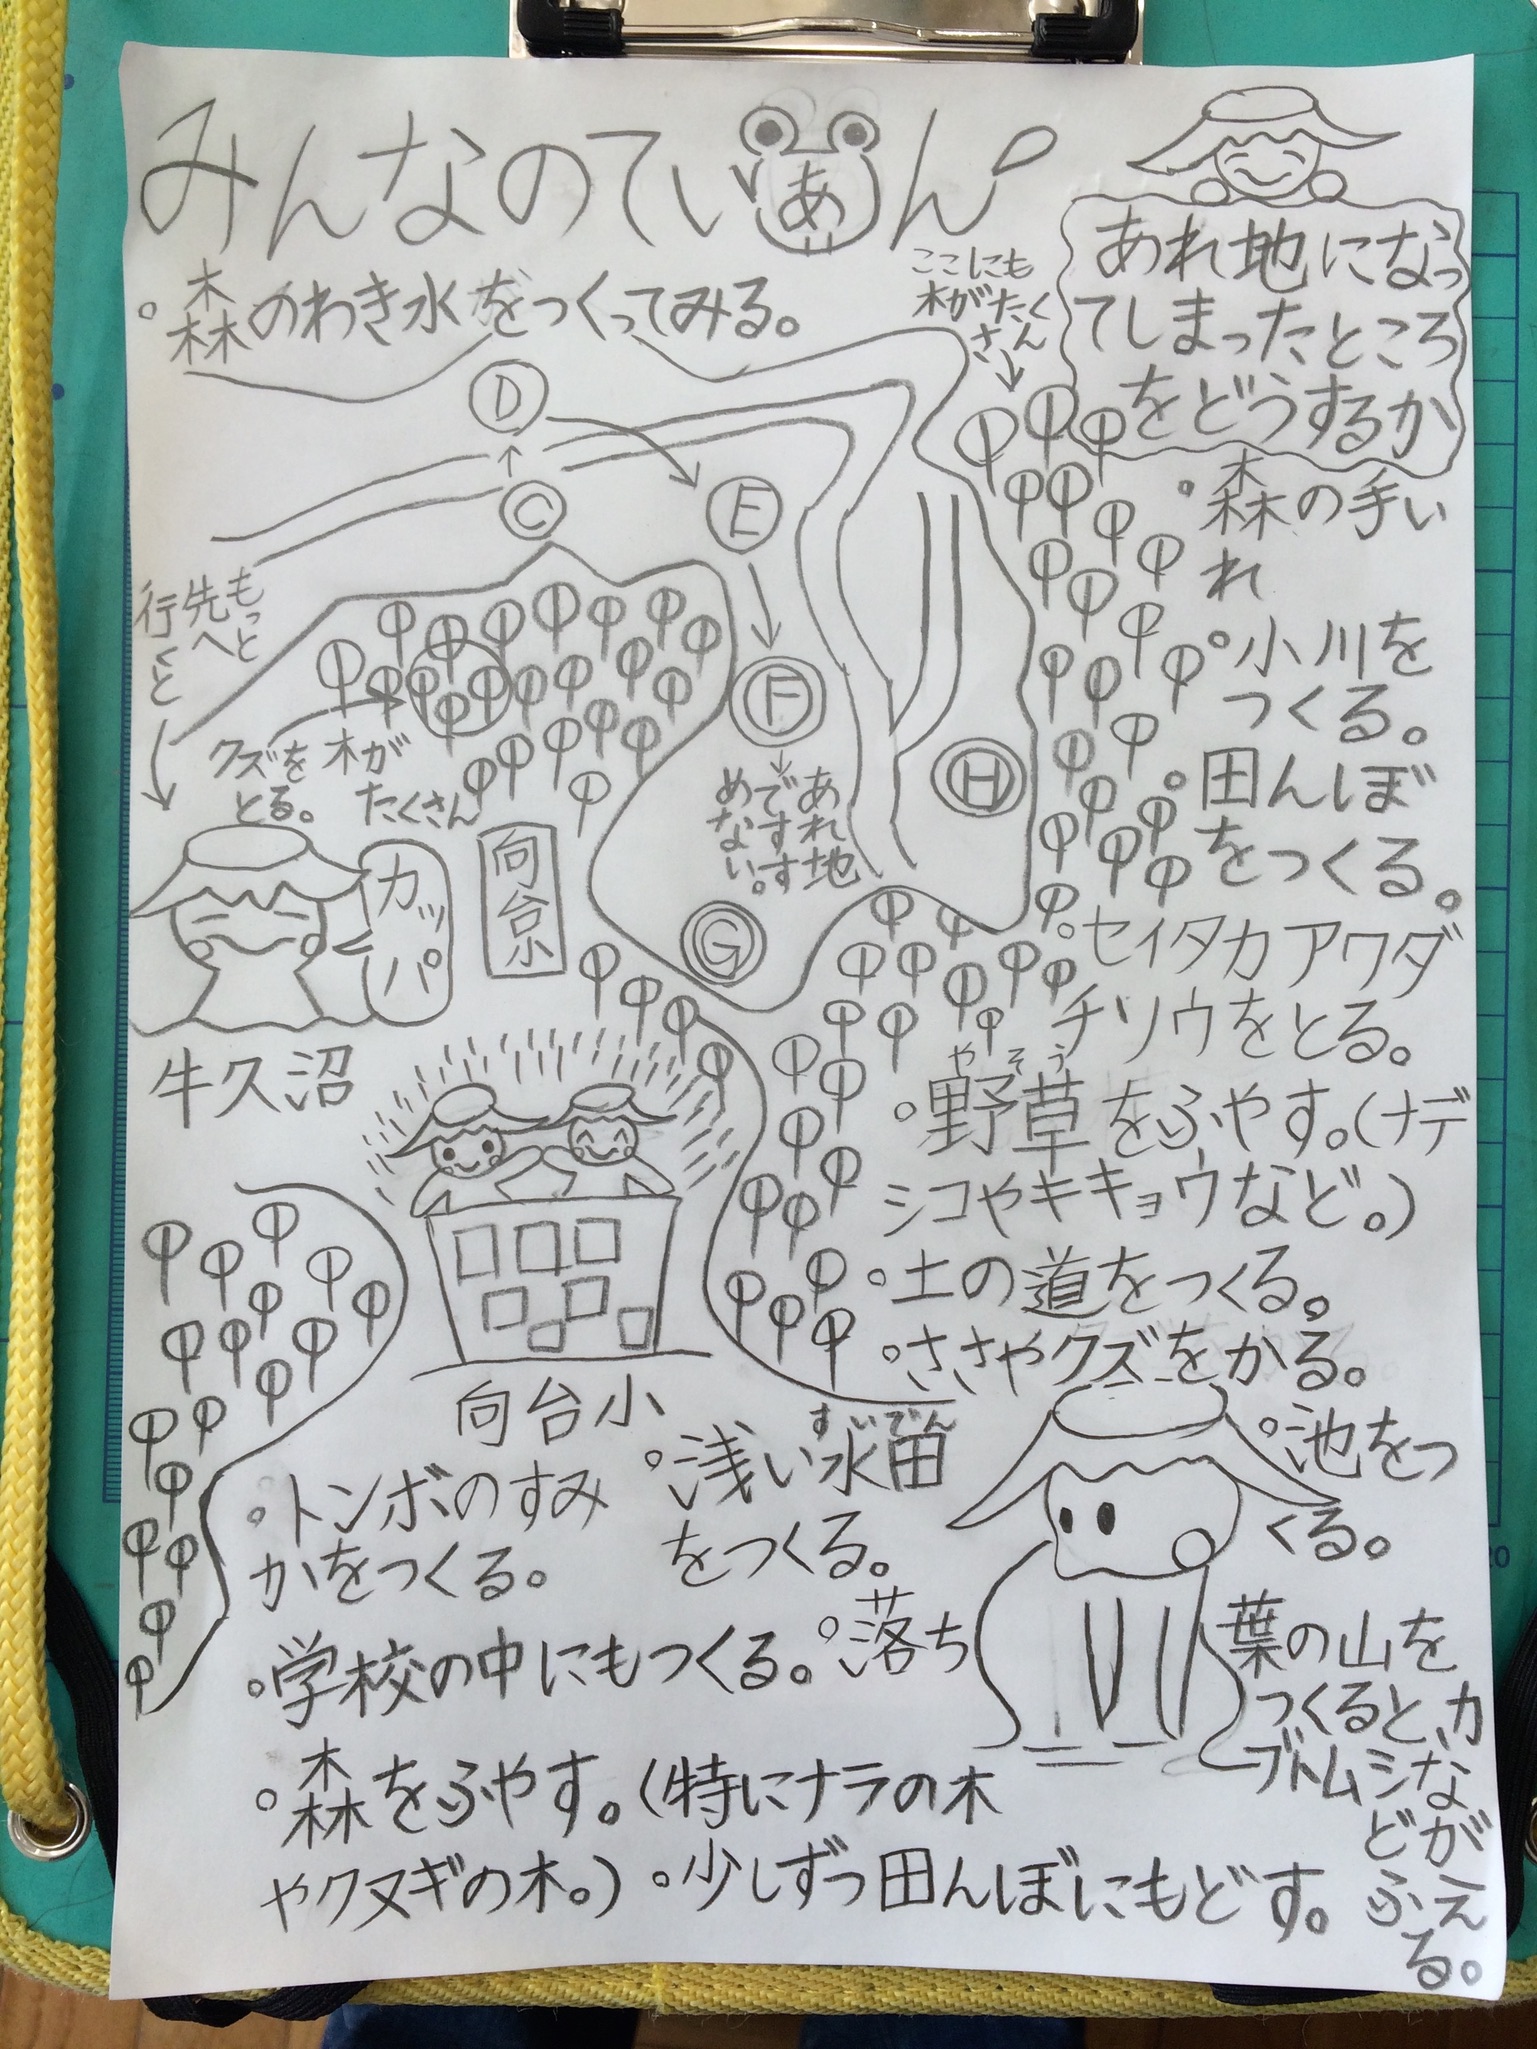 みんなのていあん
あれ地になっ
てしまったところ
をどうするか
。森のわき水をつくってみる。
ここにも
木がたく
さん
D
C
E
F
H
G
もっと
先へ
行くと
クズを
とる。
木が
たくさん
あれ地
ですす
めない。
カッパ
向台小
牛久沼
向台小
。森の手い
れ
。小川を
つくる。
。田んぼ
をつくる。
。セイタカアワダ
チソウをとる。
やそう
。野草をふやす。(ナデ
シコやキキョウなど。)
。土の道をつくる。
。ささやクズをかる。
。池をつ
くる。
すいでん
。浅い水田
をつくる。
。トンボのすみ
かをつくる。
。学校の中にもつくる。
。落ち
葉の山を
つくると、カ
ブトムシな
どが
ふえ
る。
。森をふやす。(特にナラの木
やクヌギの木。)
。少しずつ田んぼにもどす。